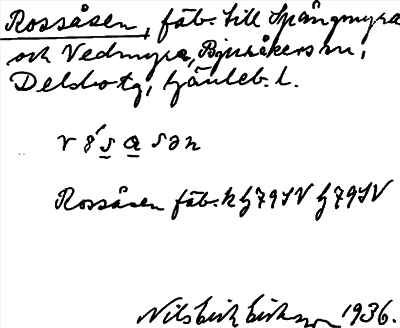 Rossåsen, fäb. till Spångmyra
och Vedmyra, Bjuråkers sn,
Delsbo tg, Gävleb. l.
Rossåsen fäb. k g79SV g79SV
Nils Erik Eriksson 1936.